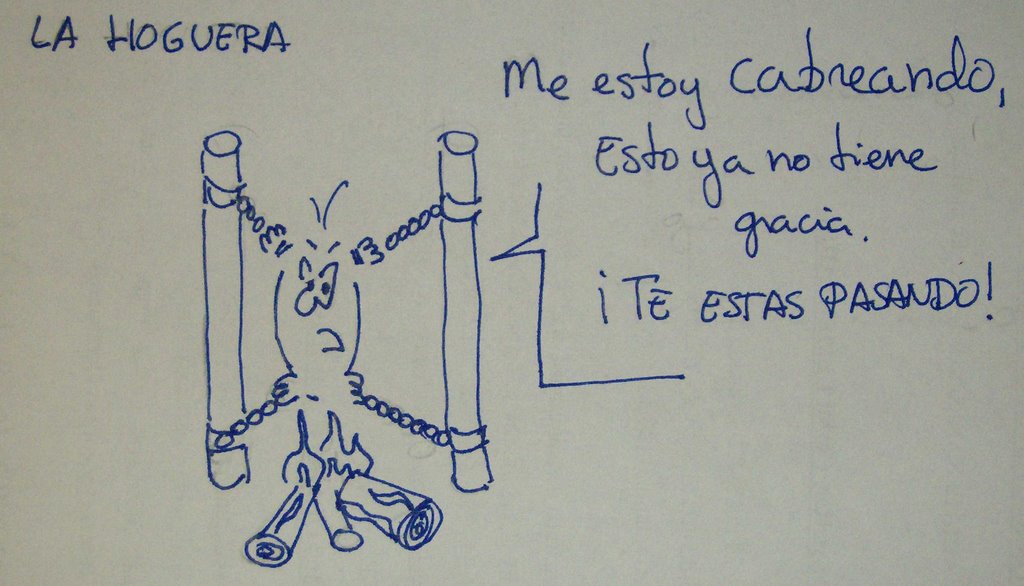 LA HOGUERA
Me estoy cabreando,
Esto ya no tiene
gracia.
¡TE ESTAS PASANDO!